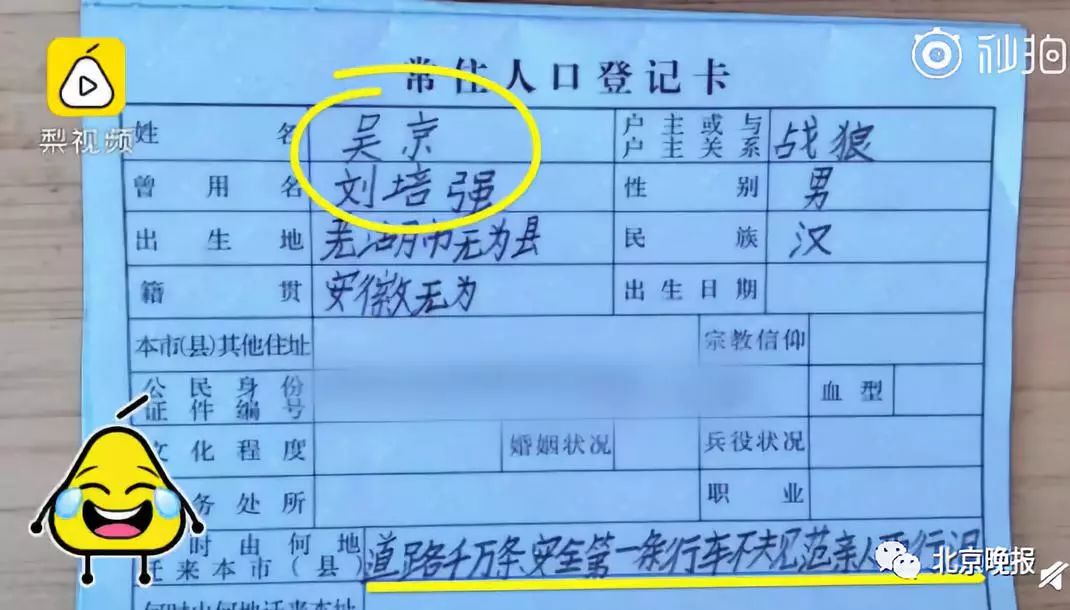 秒拍
梨视频
常住人口登记卡
姓名 吴京 户主或与户主关系 战狼
曾用名 刘培强 性别 男
出生地 芜湖市无为县 民族 汉
籍贯 安徽无为 出生日期
本市(县)其他住址 宗教信仰
公民身份证件编号 血型
文化程度 婚姻状况 兵役状况
务处所 职业
时由何地迁来本市(县) 道路千万条安全第一条行车不夫见范亲人两行泪
何时由何地迁来本址
北京晚报